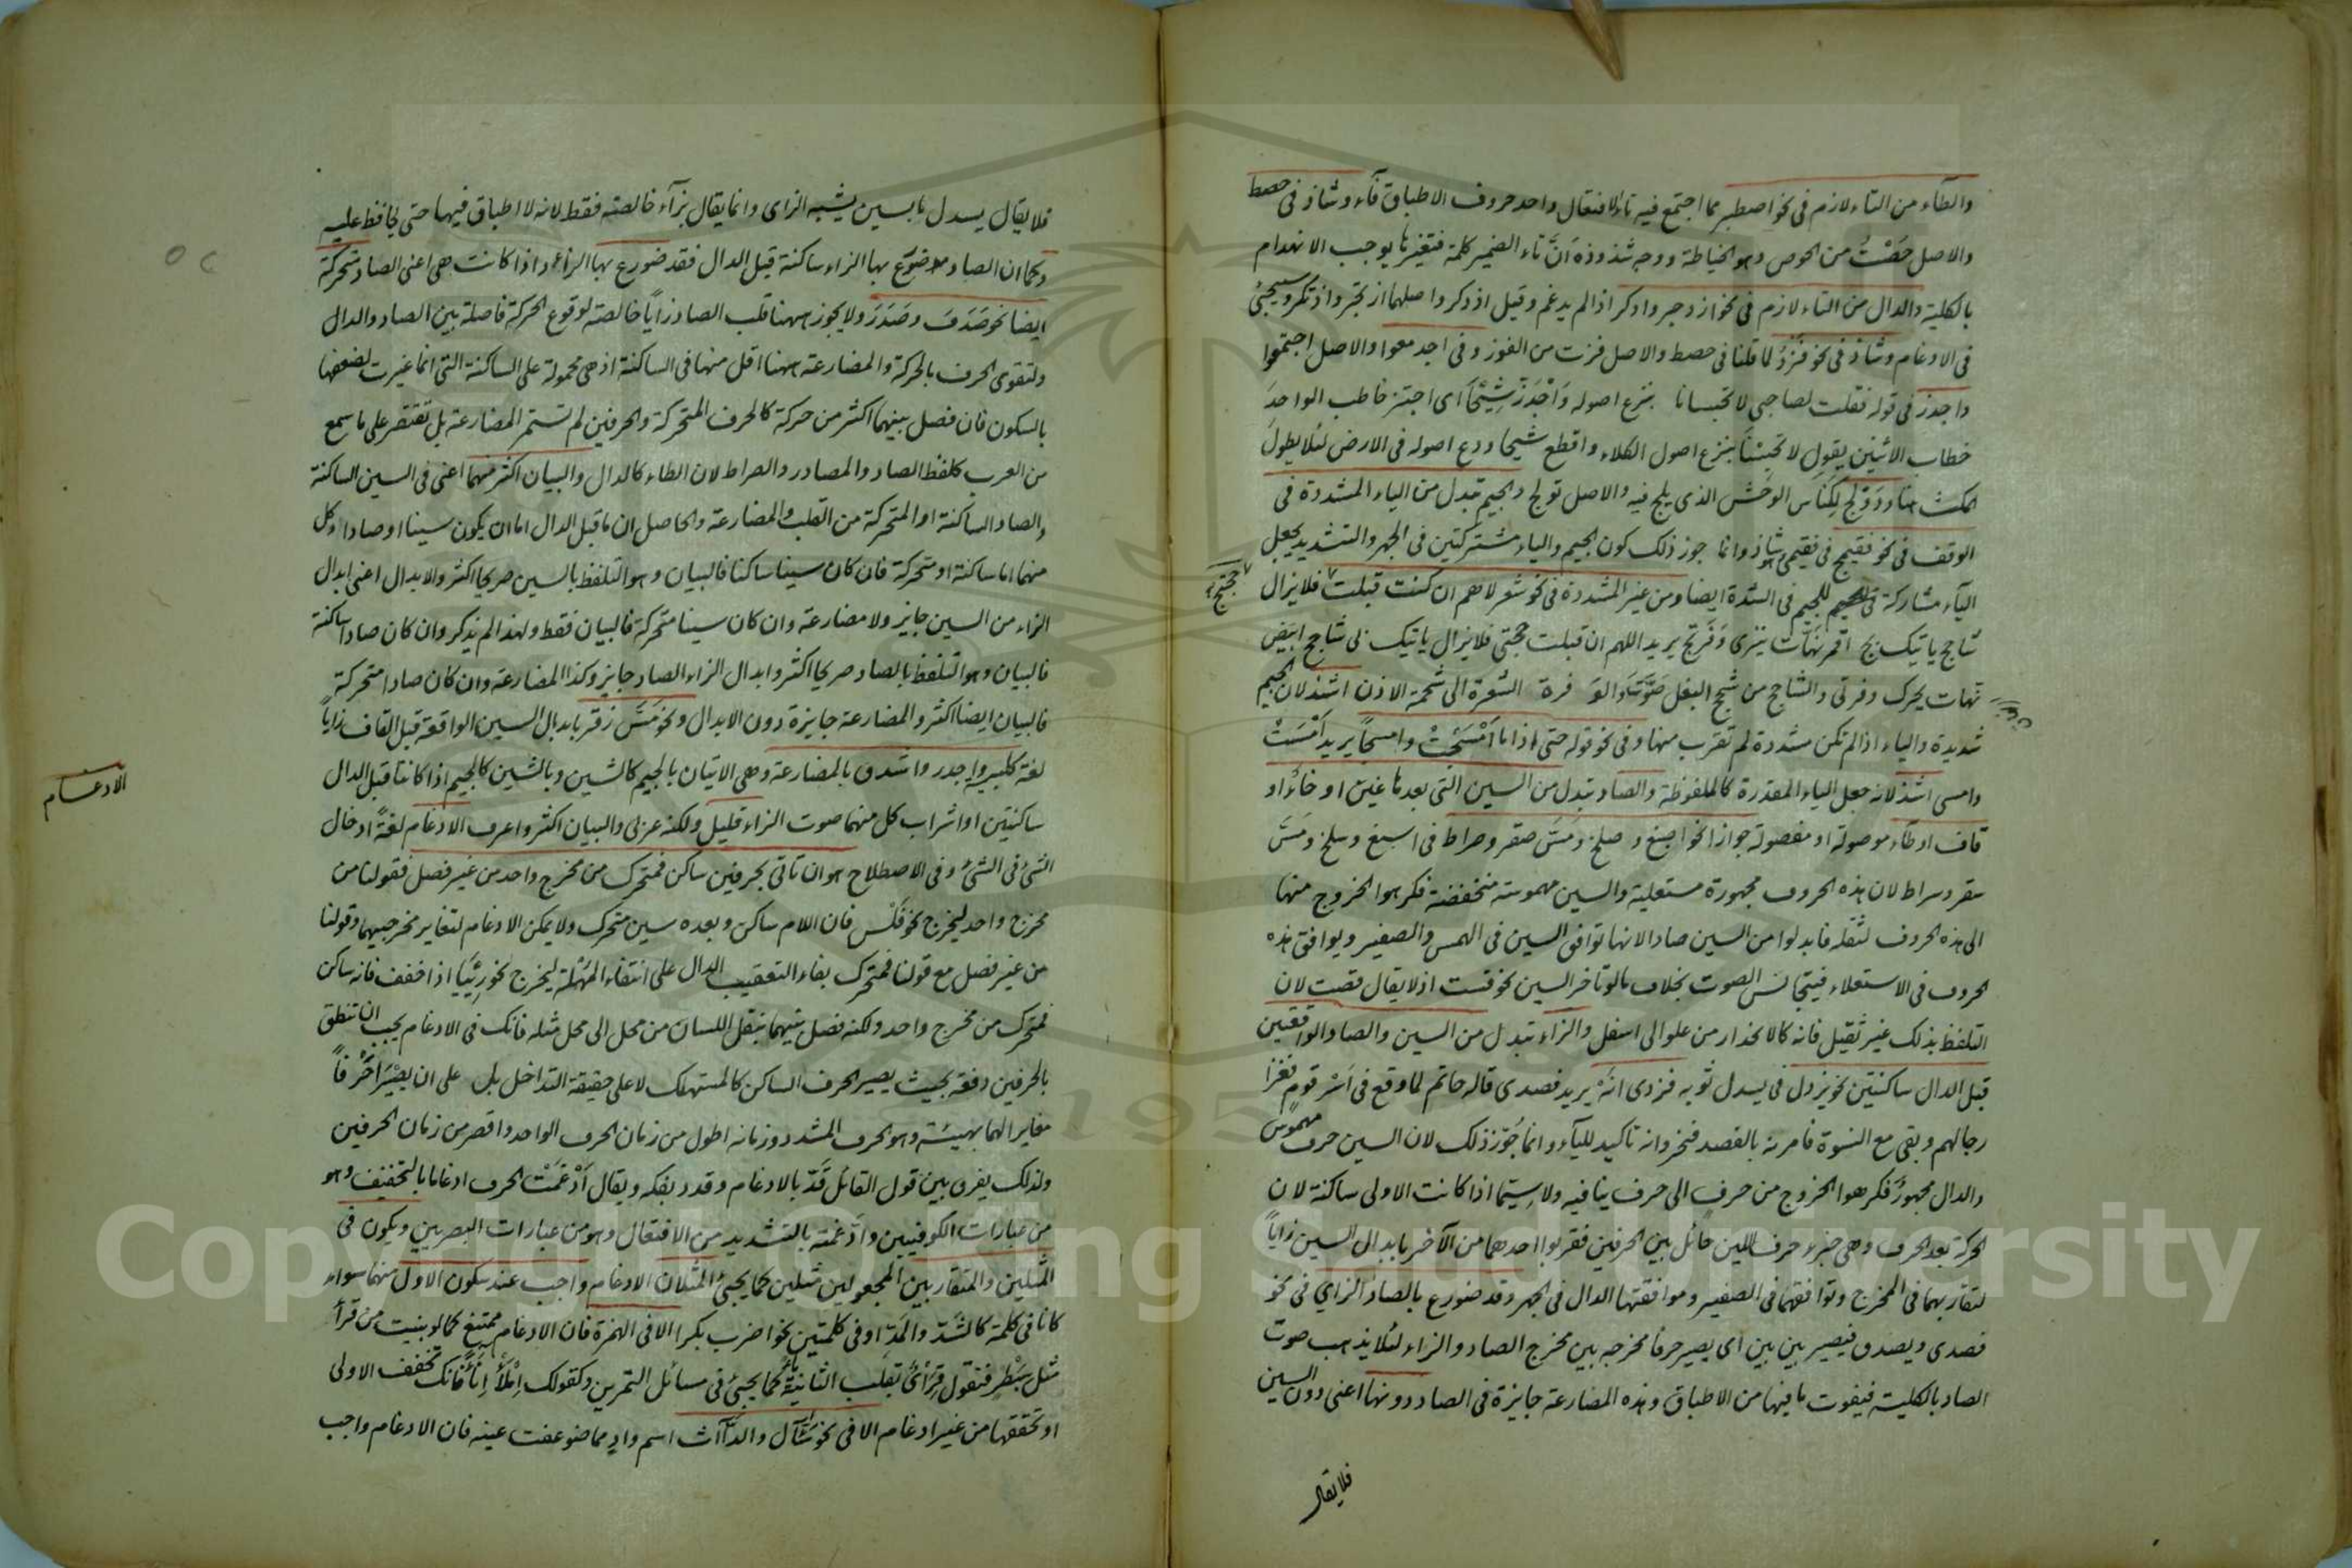 والطاء من التاء لازم فى نحو اصطبر مما اجتمع فيه تاء الافتعال واحد حروف الاطباق فآء وشاذ فى حصط
والاصل حَصْتُ من الحوص وهو الخياطة ووجه شذوذه اَنَّ تاء الضمير كلمة فتغيرها يوجب الانهدام
بالكلية والدال من التاء لازم فى نحو ازدجر وادكر اذا لم يدغم وقيل اذدكر واصلهما ازتجر واذتكر وسيجئ
فى الادغام وشاذ فى نحو فُزْدُ لما قلنا فى حصط والاصل فزت من الفوز وفى اجدمعوا والاصل اجتمعوا
واجدز فى قوله فقلت لصاحبى لا تحبسانا بنزع اصوله وَاجْدَزّ شِيْحًا اى اجتز خاطب الواحدَ
خطاب الاثنين يقول لا تحبِسْنَا بنزع اصول الكلاء واقطع شيحا ودع اصوله فى الارض لئلا يطول
المكث هنا ودَوْلَج لِكِنَاسِ الوَحْش الذى يلج فيه والاصل تولج والجيم تبدل من الياء المشددة فى
الوقف فى نحو فقيمج فى فقيمى شاذ وانما جوز ذلك كون الجيم والياء مشتركتين فى الجهر والتشديد يجعل
اليآء مشاركة للجيم فى الشدة ايضا ومن غير المشددة فى نحو شعر لاهم ان كنت قبلت فلا يزال
حجتج
شاجح ياتيك بج اقمر نَهّات ينزى وَفْرَتج يريد اللهم ان قبلت حجتى فلا يزال ياتيك بى شاحج ابيض
نهات يحرك وفرتى والشاحج من شحج البغل صَوَّتَ والوَ فرة الشعرة الى شحمة الاذن اشذ لان الجيم
شديدة والياء اذا لم تكن مشددة لم تقرب منها وفى نحو قوله حتى اذا ما اَمْسَجَتْ وامسجاً يريد اَمْسَتْ
وامسى اشذ لانه جعل الياء المقدرة كالملفوظة والصاد تبدل من السين التى بعدها غين او خاء او
قاف او طآء موصولة او مفصولة جوازا نحو اصبغ و صلخ ومَسَّ صقر وصراط فى اسبغ وسلخ ومَسَّ
سقر وسراط لان هذه الحروف مجهورة مستعلية والسين مهموسة منخفضة فكرهوا الخروج منها
الى هذه الحروف لثقله فابدلوا من السين صادا لانها توافق السين فى الهمس والصفير ويوافق هذه
الحروف فى الاستعلاء فيتجانس الصوت بخلاف ما لو تاخر السين نحو قست اذ لا يقال قصت لان
التلفظ بذلك غير ثقيل فانه كالانحدار من علو الى اسفل والزاء تبدل من السين والصاد الواقعين
قبل الدال ساكنتين نحو يزدل فى يسدل ثوبه فزدى انَهْ يريد فصدى قاله حاتم لما وقع فى اَسْر قوم فغزا
رجالهم وبقى مع النسوة فامرنه بالفصد فنحر وانه تاكيد للياء وانما جُوّز ذلك لان السين حرف مهموس
والدال مجهورٌ فكرهوا الخروج من حرف الى حرف ينافيه ولا سيّما اذا كانت الاولى ساكنة لان
الحركة بعد الحرف وهى جزء حرف اللين حائل بين الحرفين فقربوا احدهما من الآخر بابدال السين زاياً
لتقاربهما فى المخرج وتوافقهما فى الصفير وموافقتها الدال فى الجهر وقد ضورع بالصاد الزاي فى نحو
فصدى ويصدق فيصير بين بين اى يصير حرفا مخرجه بين مخرج الصاد والزاء لئلا يذهب صوت
الصاد بالكلية فيفوت ما فيها من الاطباق وهذه المضارعة جايزة فى الصاد دونها اعنى دون السين
فلا يقال
فلا يقال يسدل بالسين يشبه الزاى وانما يقال بزآء خالصة فقط لانه لا اطباق فيها حتى يحافظ عليه
وكما ان الصاد ضورع بها الزاء ساكنة قبل الدال فقد ضورع بها الزاء اذا كانت هى اعنى الصاد متحركة
ايضا نحو صَدَقَ وصَدَرَ ولا يجوز ههنا قلب الصاد زاياً خالصة لوقوع الحركة فاصلة بين الصاد والدال
ولتقوى الحرف بالحركة والمضارعة ههنا اقل منها فى الساكنة اذ هى محمولة على الساكنة التى انما غيرت لضعفها
بالسكون فان فصل بينهما اكثر من حركة كالحرف المتحركة والحرفين لم تستمر المضارعة بل تقتصر على ما سمع
من العرب كلفظ الصاد والمصادر والصراط لان الطاء كالدال والبيان اكثر منهما اعنى فى السين الساكنة
والصاد الساكنة او المتحركة من القلب والمضارعة والحاصل ان ما قبل الدال اما ان يكون سينا او صادا وكل
منهما اما ساكنة او متحركة فان كان سينا ساكنا فالبيان وهو التلفظ بالسين صريحا اكثر والابدال اعنى ابدال
الزاء من السين جايز ولا مضارعة وان كان سينا متحركة فالبيان فقط ولهذا لم يذكر وان كان صادا ساكنة
فالبيان وهو التلفظ بالصاد صريحا اكثر وابدال الزاء الصاد جايز وكذا المضارعة وان كان صادا متحركة
فالبيان ايضا اكثر والمضارعة جايزة دون الابدال ونحو مَسَّ زقر بابدال السين الواقعة قبل القاف زاياً
لغة كلبية واجدر واشدق بالمضارعة وهى الاتيان بالجيم كالشين وبالشين كالجيم اذا كانتا قبل الدال
ساكنتين او اشراب كل منهما صوت الزاء قليل ولكنه عربى والبيان اكثر واعرف الادغام لغةً ادخال
الادغام
الشئ فى الشئ وفى الاصطلاح هو ان تاتى بحرفين ساكن فمتحرك من مخرج واحد من غير فصل فقولنا من
مخرج واحد ليخرج نحو فَلْس فان اللام ساكن وبعده سين متحرك ولا يمكن الادغام لتغاير مخرجيهما وقولنا
من غير فصل مع قولنا فمتحرك بفاء التعقيب الدال على انتفاء المهْلة ليخرج نحو رِئْيَا اذا خفف فانه ساكن
فمتحرك من مخرج واحد ولكنه فصل بينهما بنقل اللسان من محل الى محل مثله فانك فى الادغام يجب ان تنطق
بالحرفين دفعة بحيث يصير الحرف الساكن كالمستهلك لا على حقيقة التداخل بل على ان يصيْرَا حَرْفاً
مغايرا لهما بهيئة وهو الحرف المشدد وزمانه اطول من زمان الحرف الواحد واقصر من زمان الحرفين
ولذلك يفرق بين قول القائل قَدّ بالادغام وقدد بفكه ويقال اَدْغَمْتُ الحرف ادغاما بالتخفيف وهو
من عبارات الكوفيين وادَّغمته بالتشديد من الافتعال وهو من عبارات البصريين ويكون فى
المثلين والمتقاربين المجعولين مثلين كما يجئ المثلان الادغام واجب عند سكون الاول منهما سواء
كانا فى كلمة كالشَدّ والمَدّ او فى كلمتين نحو اضرب بكرا الا فى الهمزة فان الادغام ممتنع كما لو بنيت من قرأ
مثل سِبَطْرٍ فتقول قِرَأْىٌ بقلب الثانية ياءً كما يجئ فى مسائل التمرين وكقولك اِمْلَأْ اِنَاءً فانك تخفف الاولى
او تحققها من غير ادغام الا فى نحو سَئّآل والدَّآآث اسم وادٍ مما ضوعفت عينه فان الادغام واجب
Copyright © King Saud University
1957